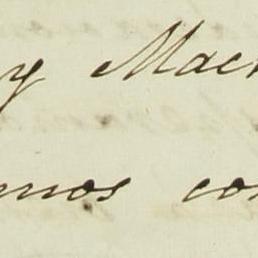 y Mach
mos con